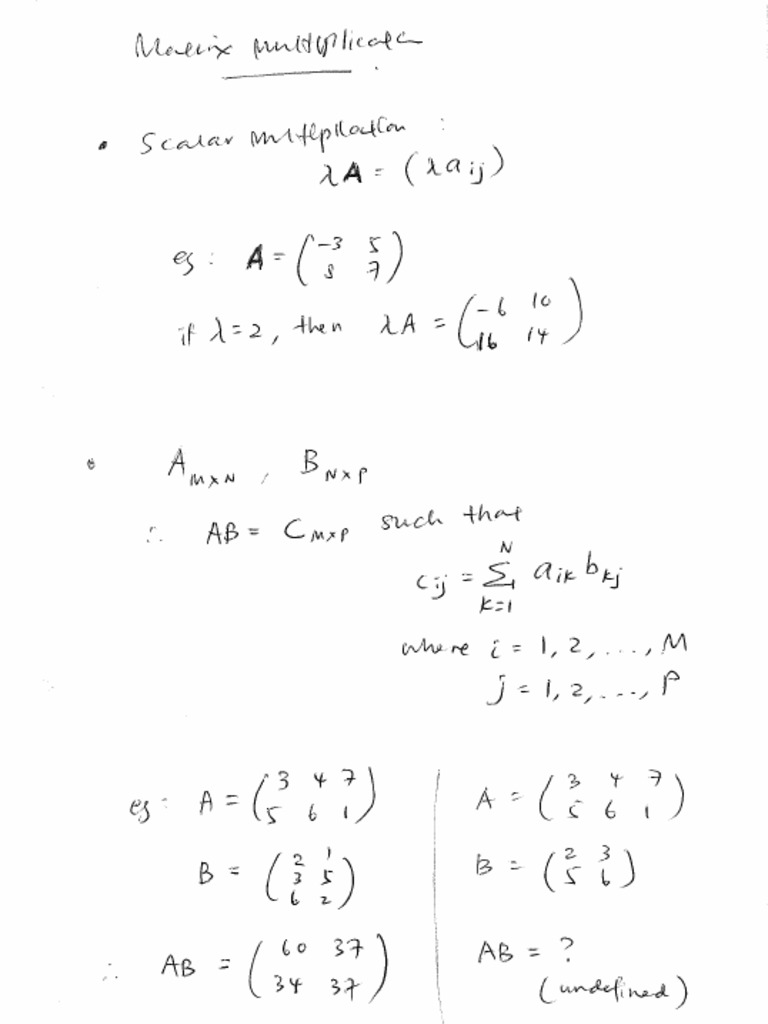 Matrix Multiplication
• Scalar Multiplication :
λA = (λa ij)
eg : A = (-3 5
8 7)
if λ = 2, then λA = (-6 10
16 14)
• A M×N , B N×P
∴ AB = C M×P such that
c ij = Σ N k=1 a ik b kj
where i = 1, 2, ..., M
j = 1, 2, ..., P
eg : A = (3 4 7
5 6 1)
B = (2 1
3 5
6 2)
∴ AB = (60 37
34 37)
A = (3 4 7
5 6 1)
B = (2 3
5 6)
AB = ?
(undefined)